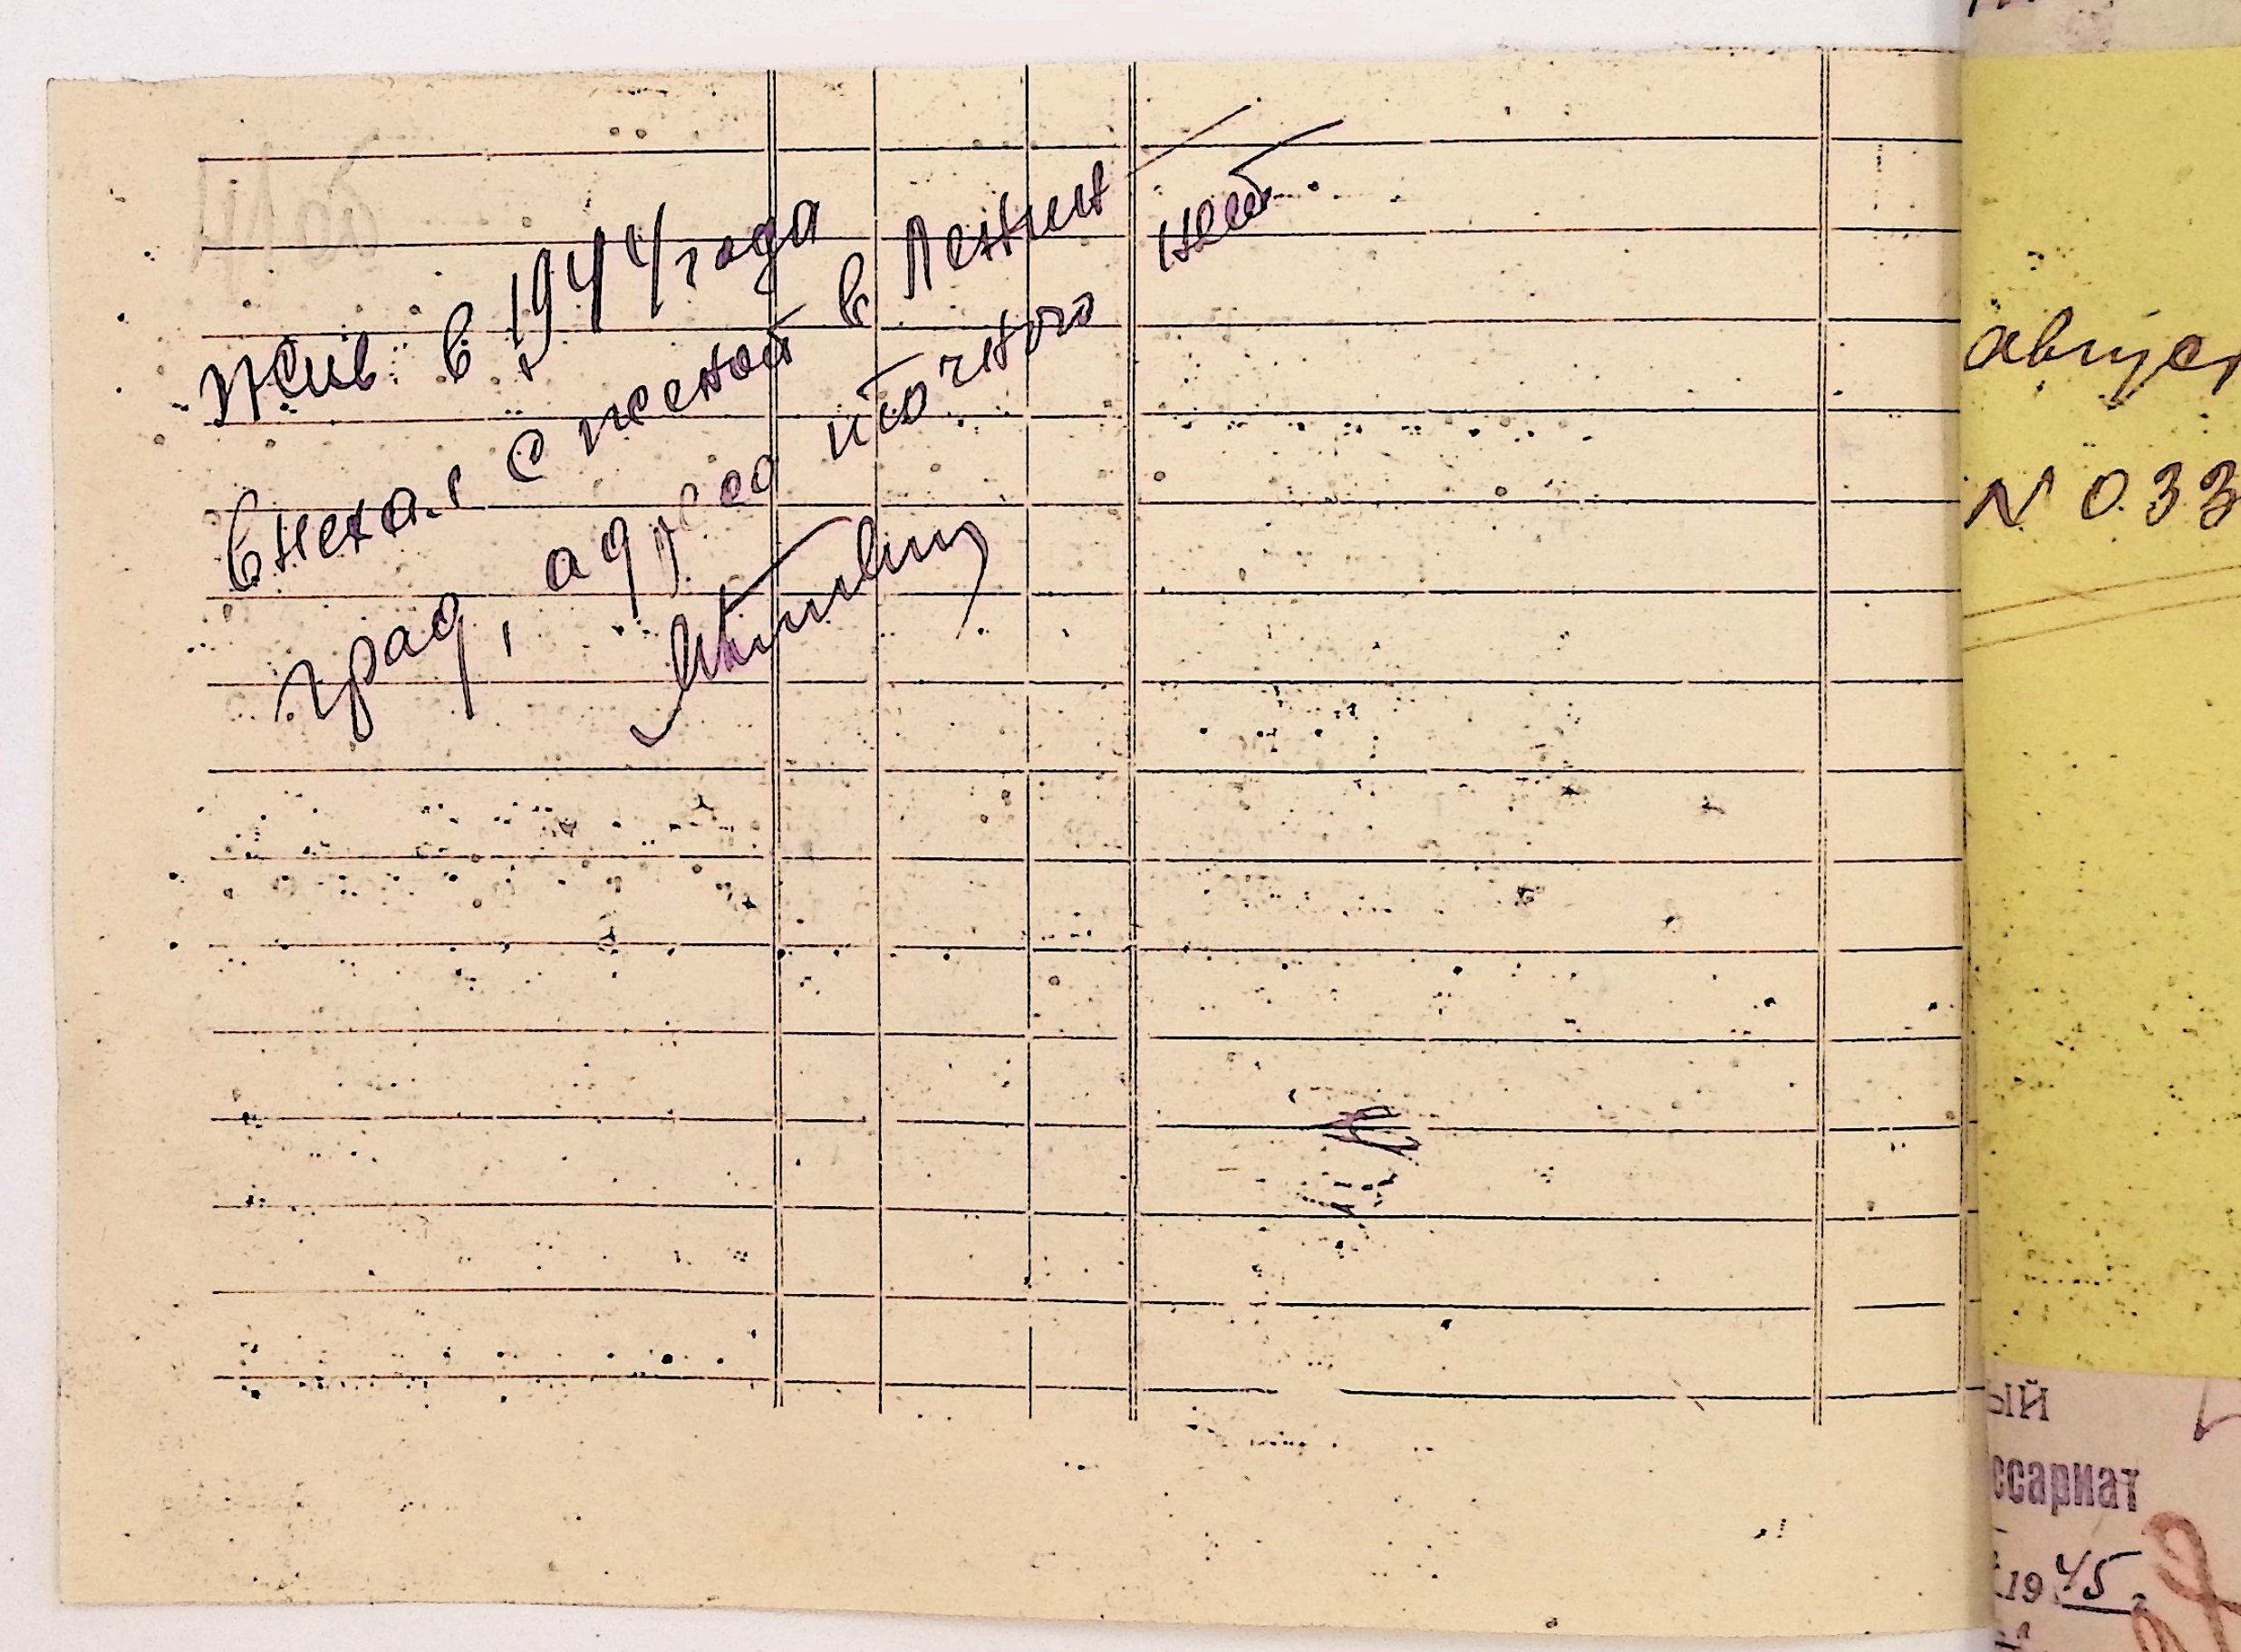 жив в 1944 года
выехал с женой в Ленин
град, адреса точного нет.
август
N 033
ый
ссариат
1945